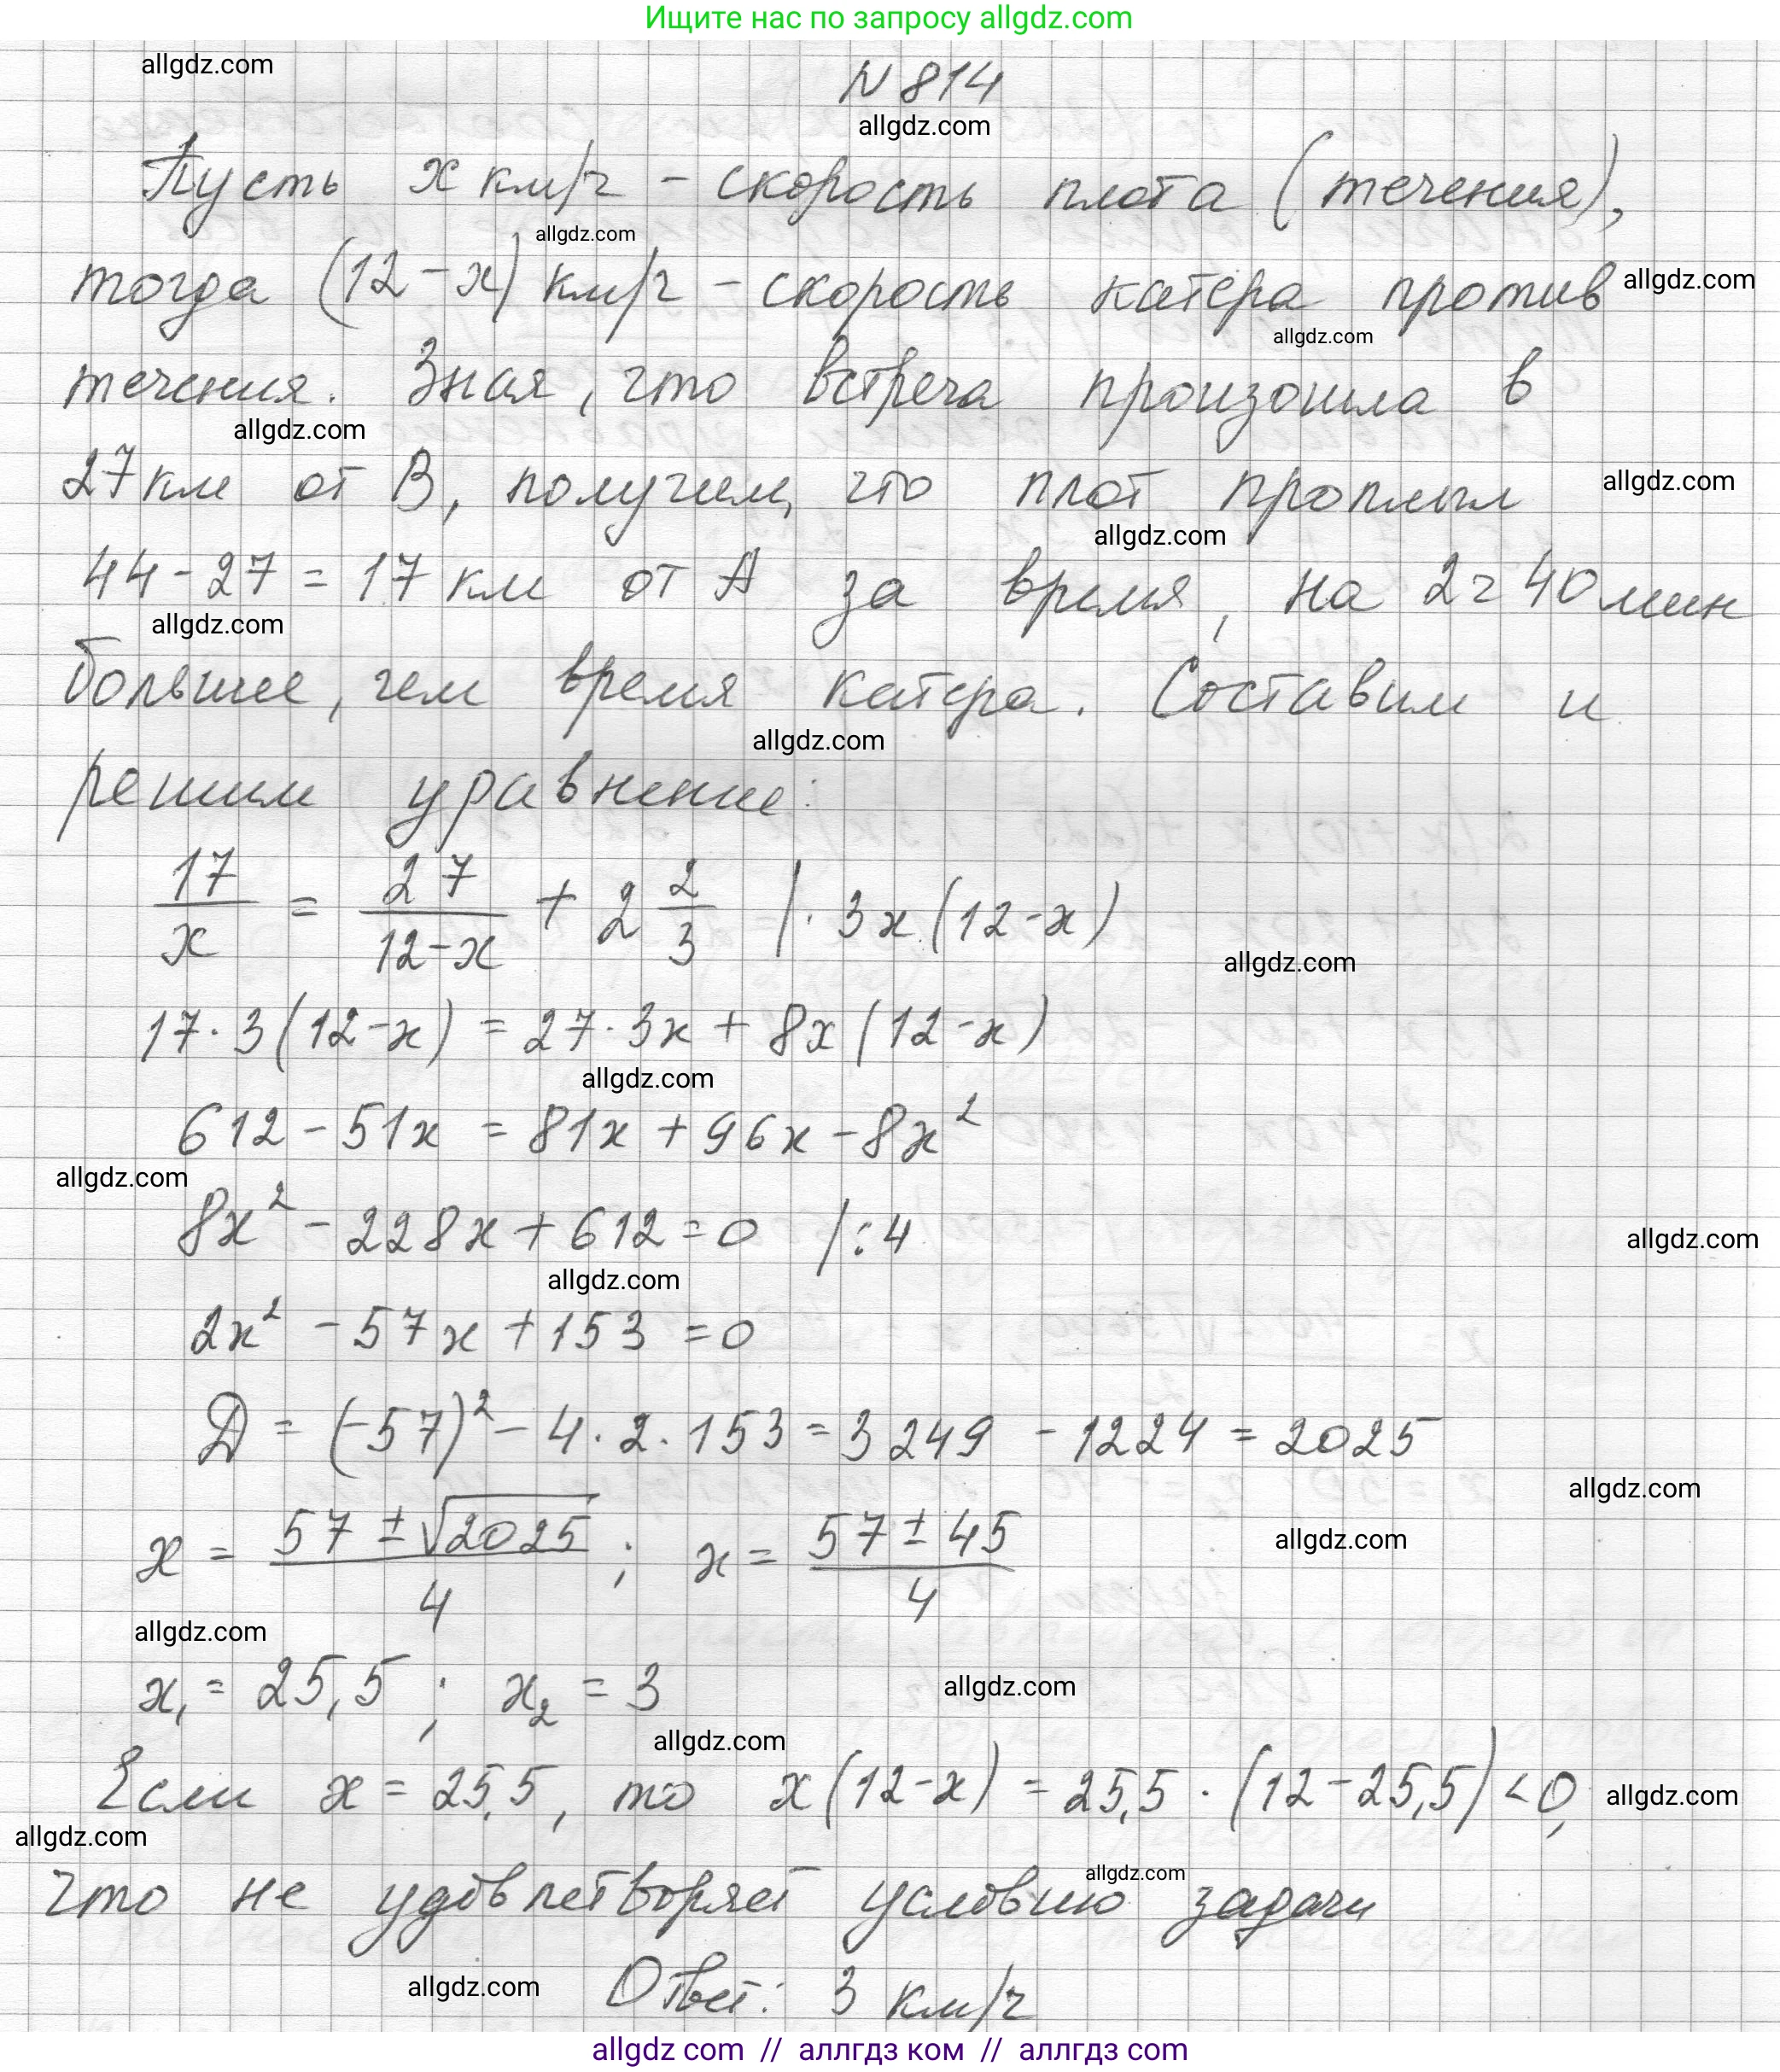 Ищите нас по запросу allgdz.com
allgdz.com
N 814
allgdz.com
Пусть x км/ч - скорость плота (течения),
allgdz.com
тогда (12-x) км/ч - скорость катера против
allgdz.com
allgdz.com
течения. Зная, что встреча произошла в
allgdz.com
27 км от B, получим, что плот проплыл
allgdz.com
allgdz.com
44-27 = 17 км от A за время, на 2ч 40 мин
allgdz.com
больше, чем время катера. Составим и
allgdz.com
решим уравнение:
17/x = 27/(12-x) + 2 2/3 | · 3x (12-x)
allgdz.com
17·3(12-x) = 27·3x + 8x(12-x)
allgdz.com
612 - 51x = 81x + 96x - 8x²
allgdz.com
8x² - 228x + 612 = 0 |:4
allgdz.com
allgdz.com
2x² - 57x + 153 = 0
D = (-57)² - 4·2·153 = 3249 - 1224 = 2025
allgdz.com
allgdz.com
x = (57 ± √2025)/4 ; x = (57 ± 45)/4
allgdz.com
x₁ = 25,5 ; x₂ = 3
allgdz.com
allgdz.com
Если x = 25,5, то x(12-x) = 25,5 · (12-25,5) < 0,
allgdz.com
allgdz.com
allgdz.com
что не удовлетворяет условию задачи
allgdz.com
Ответ: 3 км/ч
allgdz com // аллгдз ком // аллгдз com